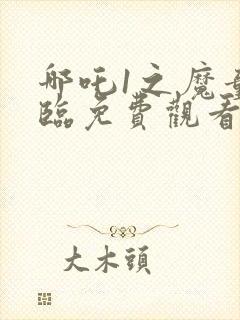 哪吒1之魔
臨免費觀看
大木頭